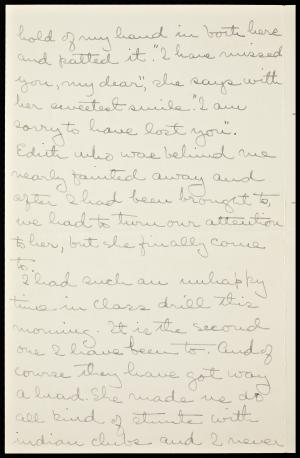 hold of my hand in both hers
and patted it. "I have missed
you, my dear", she says with
her sweetest smile. "I am
sorry to have lost you".
Edith who was behind me
nearly fainted away and
after I had been brought to,
we had to turn our attention
to her, but she finally come
to.
I had such an unhappy
time in class drill this
morning. It is the second
one I have been to. And of
course they have got way
ahead. She made us do
all kind of stunts with
indian clubs and I never